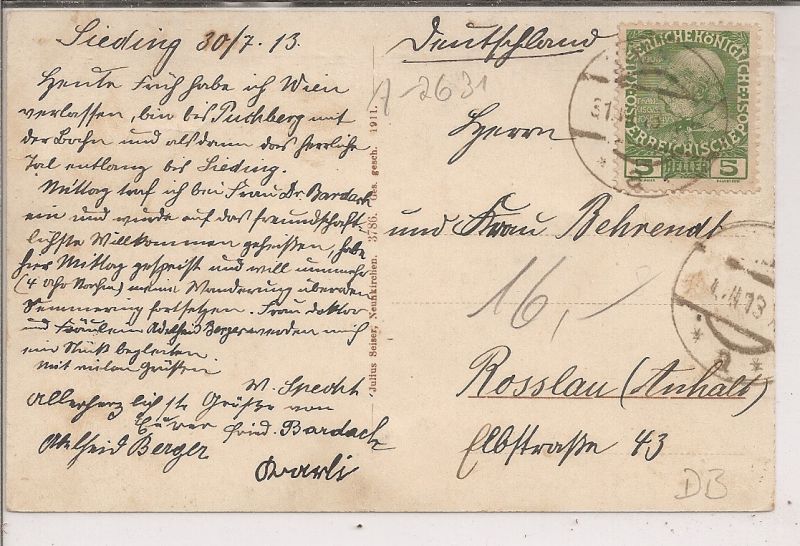 Sieding 30/7. 13.
Heute Früh habe ich Wien
verlassen, bin bis Puchberg mit
der Bahn und alsdann das herrliche
Tal entlang bis Sieding.
Mittag traf ich bei Frau Dr. Bardach
ein und wurde auf das freundschaft-
lichste Willkommen geheissen, habe
hier Mittag gespeist und will nunmehr
(4 Uhr Nachm) meine Wanderung über den
Semmering fortsetzen. Frau Doktor
und Fräulein Adelheid Berger werden mich
ein Stück begleiten.
Mit vielen Grüßen
W. Specht
Allerherzlichste Grüße von
Eurer Fried. Bardach
Adelheid Berger
Karli
Julius Seiser, Neunkirchen. 3786. Ges. gesch. 1911.
Deutschland
A-2631
Herrn
und Frau Behrendt
16,-
Rosslau (Anhalt)
Elbstraße 43
DB
KAISERLICHE KÖNIGLICHE ÖSTERREICHISCHE POST
5 HELLER 5